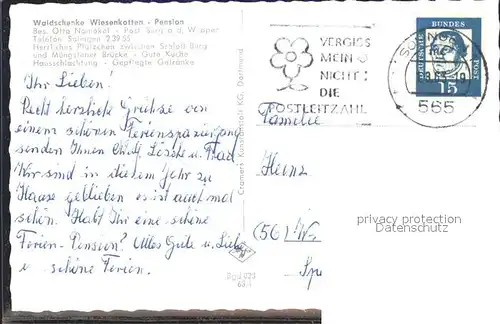 Waldschenke Wiesenkotten - Pension
Bes. Otto Nameket - Post Burg a. d. Wupper
Telefon Solingen 23955
Herrliches Plätzchen zwischen Schloß Burg
und Müngstener Brücke - Gute Küche
Hausschlachtung - Gepflegte Getränke
Ihr Lieben!
Recht herzliche Grüße von
einem schönen Ferienspaziergang
senden Ihnen
Wir sind in diesem Jahr zu
Hause geblieben es ist auch mal
schön. Habt Ihr eine schöne
Ferien-Pension? Alles Gute u. Liebe
u schöne Ferien.
Cramers Kunstanstalt KG, Dortmund
VERGISS
MEIN
NICHT
DIE
POSTLEITZAHL
SOLINGEN
565
DEUTSCHE BUNDESPOST
15
Familie
Heinz
(56)
privacy protection
Datenschutz